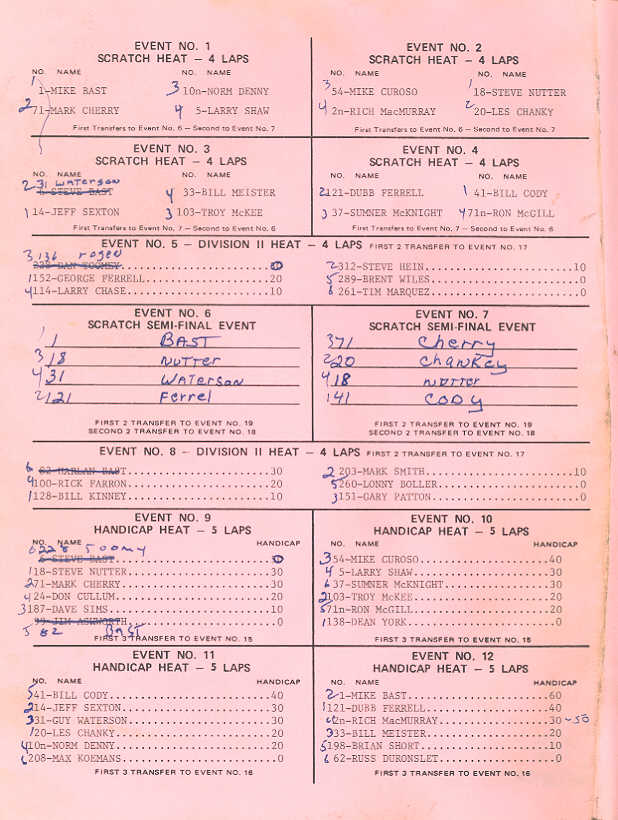 EVENT NO. 1
SCRATCH HEAT – 4 LAPS
NO. NAME NO. NAME
1 1-MIKE BAST 3 10n-NORM DENNY
2 71-MARK CHERRY 4 5-LARRY SHAW
First Transfers to Event No. 6 – Second to Event No. 7
EVENT NO. 2
SCRATCH HEAT – 4 LAPS
NO. NAME NO. NAME
3 54-MIKE CUROSO 1 18-STEVE NUTTER
4 2n-RICH MacMURRAY 2 20-LES CHANKY
First Transfers to Event No. 6 – Second to Event No. 7
EVENT NO. 3
SCRATCH HEAT – 4 LAPS
NO. NAME NO. NAME
2 31 WATERSON
6-STEVE BAST 4 33-BILL MEISTER
1 14-JEFF SEXTON 3 103-TROY McKEE
First Transfers to Event No. 7 – Second to Event No. 6
EVENT NO. 4
SCRATCH HEAT – 4 LAPS
NO. NAME NO. NAME
2 121-DUBB FERRELL 1 41-BILL CODY
3 37-SUMNER McKNIGHT 4 71n-RON McGILL
First Transfers to Event No. 7 – Second to Event No. 6
EVENT NO. 5 – DIVISION II HEAT – 4 LAPS FIRST 2 TRANSFER TO EVENT NO. 17
3 136 rogen
228-DAN TOOMEY 0
1 152-GEORGE FERRELL 20
4 114-LARRY CHASE 10
2 312-STEVE HEIN 10
5 289-BRENT WILES 0
6 261-TIM MARQUEZ 0
EVENT NO. 6
SCRATCH SEMI-FINAL EVENT
1 1 BAST
3 18 NUTTER
4 31 WATERSON
2 121 Ferrel
FIRST 2 TRANSFER TO EVENT NO. 19
SECOND 2 TRANSFER TO EVENT NO. 18
EVENT NO. 7
SCRATCH SEMI-FINAL EVENT
3 71 Cherry
2 20 Chankey
4 18 NUTTER
1 41 CODY
FIRST 2 TRANSFER TO EVENT NO. 19
SECOND 2 TRANSFER TO EVENT NO. 18
EVENT NO. 8 – DIVISION II HEAT – 4 LAPS FIRST 2 TRANSFER TO EVENT NO. 17
6 82-HARLAN BAST 30
4 100-RICK FARRON 20
1 128-BILL KINNEY 10
2 203-MARK SMITH 10
5 260-LONNY BOLLER 0
3 151-GARY PATTON 0
EVENT NO. 9
HANDICAP HEAT – 5 LAPS
NO. NAME HANDICAP
6 228 TOOMY
6-STEVE BAST 0
1 18-STEVE NUTTER 30
2 71-MARK CHERRY 30
4 24-DON CULLUM 20
3 187-DAVE SIMS 10
99-JIM ASHWORTH 0
5 82 BAST
FIRST 3 TRANSFER TO EVENT NO. 15
EVENT NO. 10
HANDICAP HEAT – 5 LAPS
NO. NAME HANDICAP
3 54-MIKE CUROSO 40
4 5-LARRY SHAW 30
6 37-SUMNER McKNIGHT 30
2 103-TROY McKEE 20
5 71n-RON McGILL 20
1 138-DEAN YORK 0
FIRST 3 TRANSFER TO EVENT NO. 15
EVENT NO. 11
HANDICAP HEAT – 5 LAPS
NO. NAME HANDICAP
5 41-BILL CODY 40
2 14-JEFF SEXTON 30
3 31-GUY WATERSON 30
1 20-LES CHANKY 20
4 10n-NORM DENNY 20
6 208-MAX KOEMANS 0
FIRST 3 TRANSFER TO EVENT NO. 16
EVENT NO. 12
HANDICAP HEAT – 5 LAPS
NO. NAME HANDICAP
2 1-MIKE BAST 60
1 121-DUBB FERRELL 40
2n-RICH MacMURRAY 30 -50
3 33-BILL MEISTER 20
5 198-BRIAN SHORT 10
6 62-RUSS DURONSLET 0
FIRST 3 TRANSFER TO EVENT NO. 16